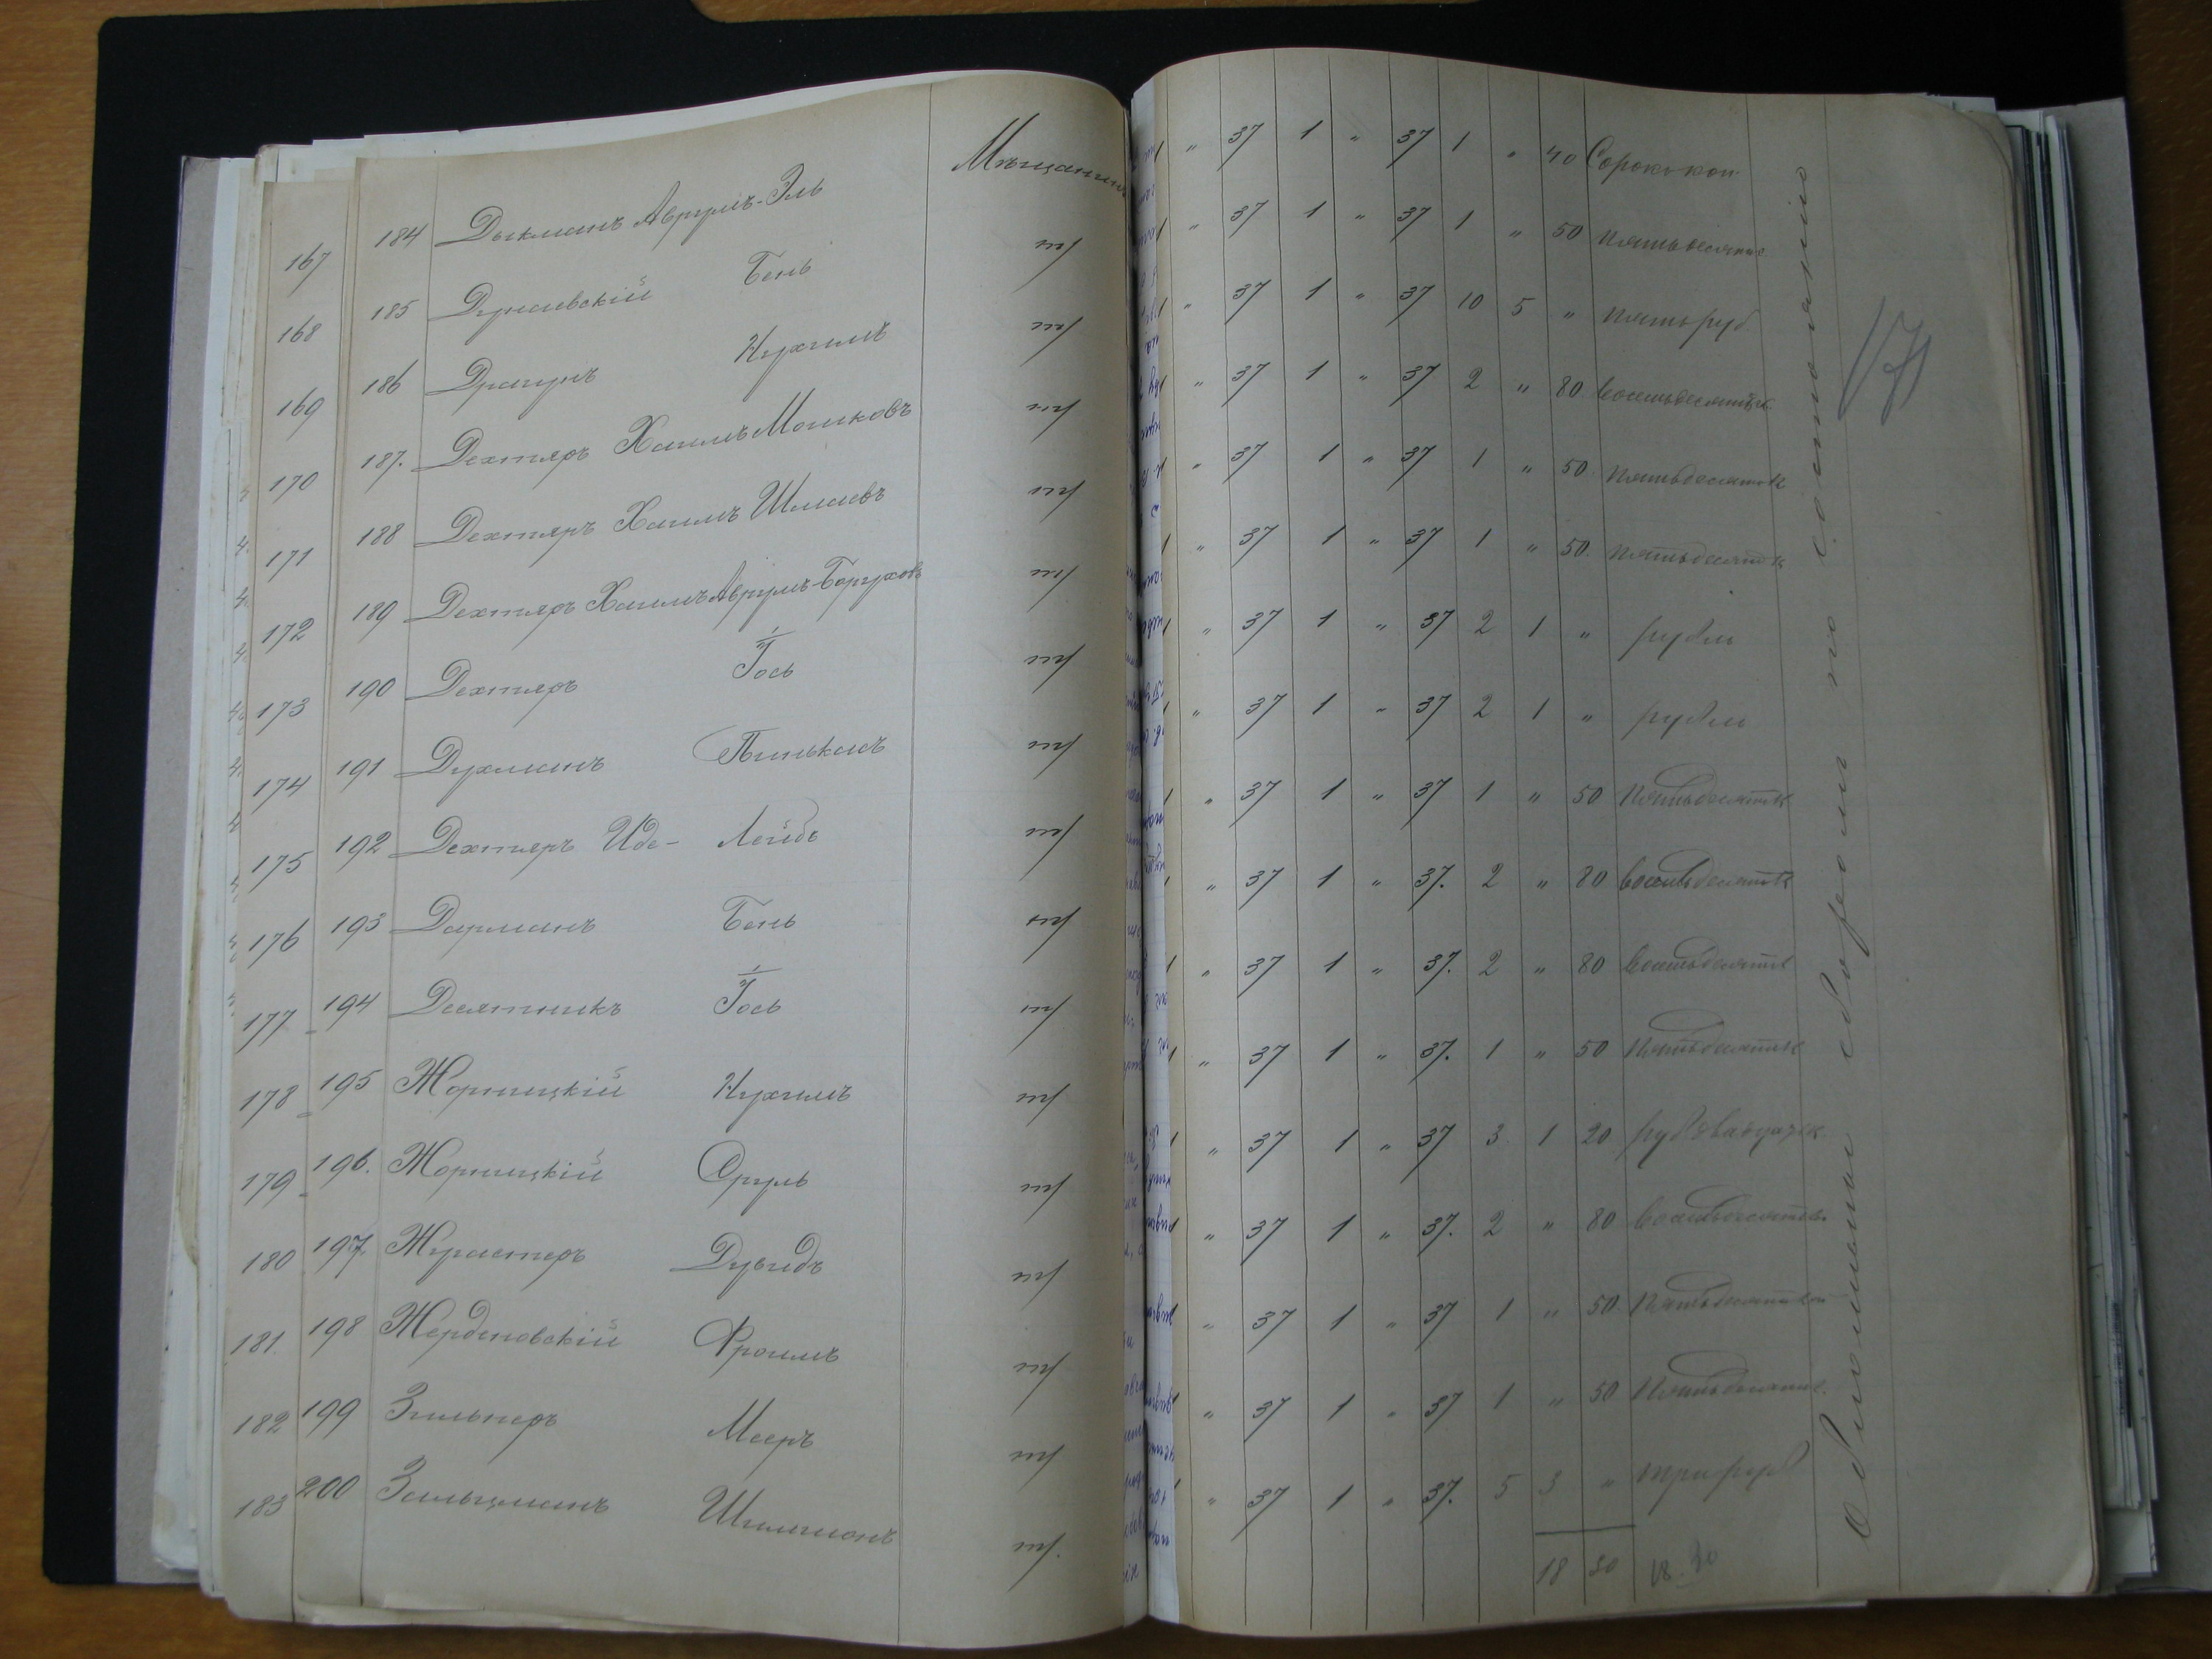 Мѣщанинъ
167 184 Дыкманъ Аврумъ-Эль т/
168 185 Дунаевскій Бень т/
169 186 Драгунъ Нухимъ т/
170 187. Дехтяръ Хаимъ Мошковъ т/
171 188 Дехтяръ Хаимъ Шмаевъ т/
172 189 Дехтяръ Хаимъ Аврумъ-Боруховъ т/
173 190 Дехтяръ Іось т/
174 191 Духманъ Пинькасъ т/
175 192 Дехтяръ Иде- Лейбъ т/
176 193 Дарманъ Бень т/
177 194 Десятникъ Іось т/
178 195 Жорницкій Нухимъ т/
179 196. Жорницкій Сруль т/
180 197. Дувидъ т/
181. 198 Жердиновскій Фроимъ т/
182 199 Зильперъ Мееръ т/
183 200 Зальцманъ Шимшонъ т/.
" 37 1 " 37 1 " 40 Сорокъ коп.
" 37 1 " 37 1 " 50 пятьдесят к
" 37 1 " 37 10 5 " пять руб
" 37 1 " 37 2 " 80 восемьдесятъ к.
" 37 1 " 37 1 " 50 пятьдесят к
" 37 1 " 37 1 " 50. пятьдесят к
" 37 1 " 37 2 1 " рубль
" 37 1 " 37 2 1 " рубль
" 37 1 " 37 1 " 50 пятьдесят к
" 37 1 " 37. 2 " 80 восемьдесят к
" 37 1 " 37. 2 " 80 восемьдесят к
" 37 1 " 37. 1 " 50 пятьдесят к
" 37 1 " 37 3 1 20 руб двадцать к.
" 37 1 " 37. 2 " 80 восемьдесят к.
" 37 1 " 37 1 " 50. пятьдесят коп
" 37 1 " 37 1 " 50 пятьдесят к.
" 37 1 " 37. 5 3 " три руб
18 30 18-30
обложены сборомъ по состоянію
171